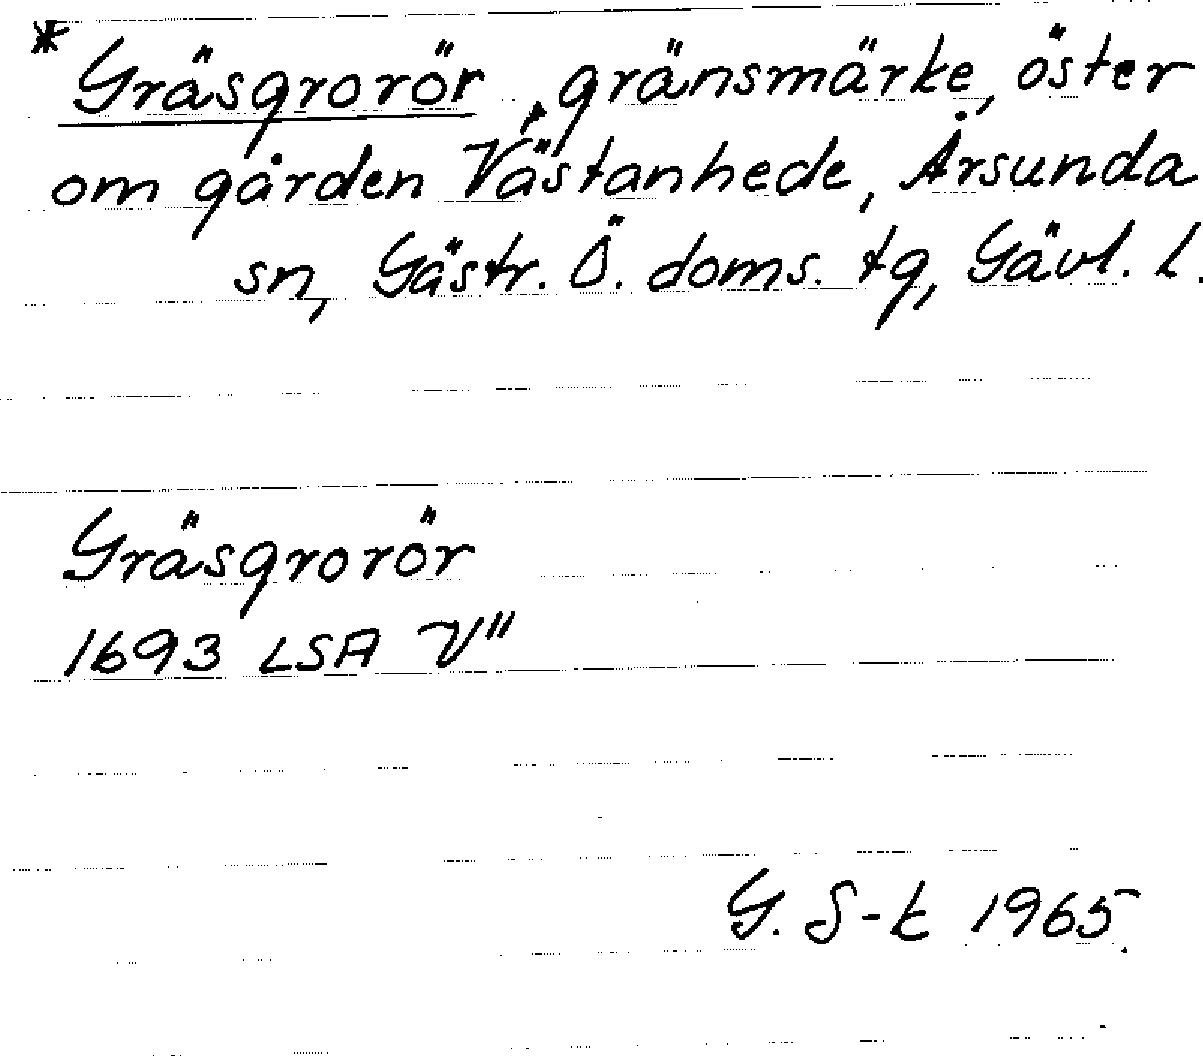 * Gräsgrorör, gränsmärke, öster
om gården Västanhede, Årsunda
sn, Gästr. Ö. doms. tg, Gävl. l.
Gräsgrorör
1693 LSA V"
G. S-t 1965.